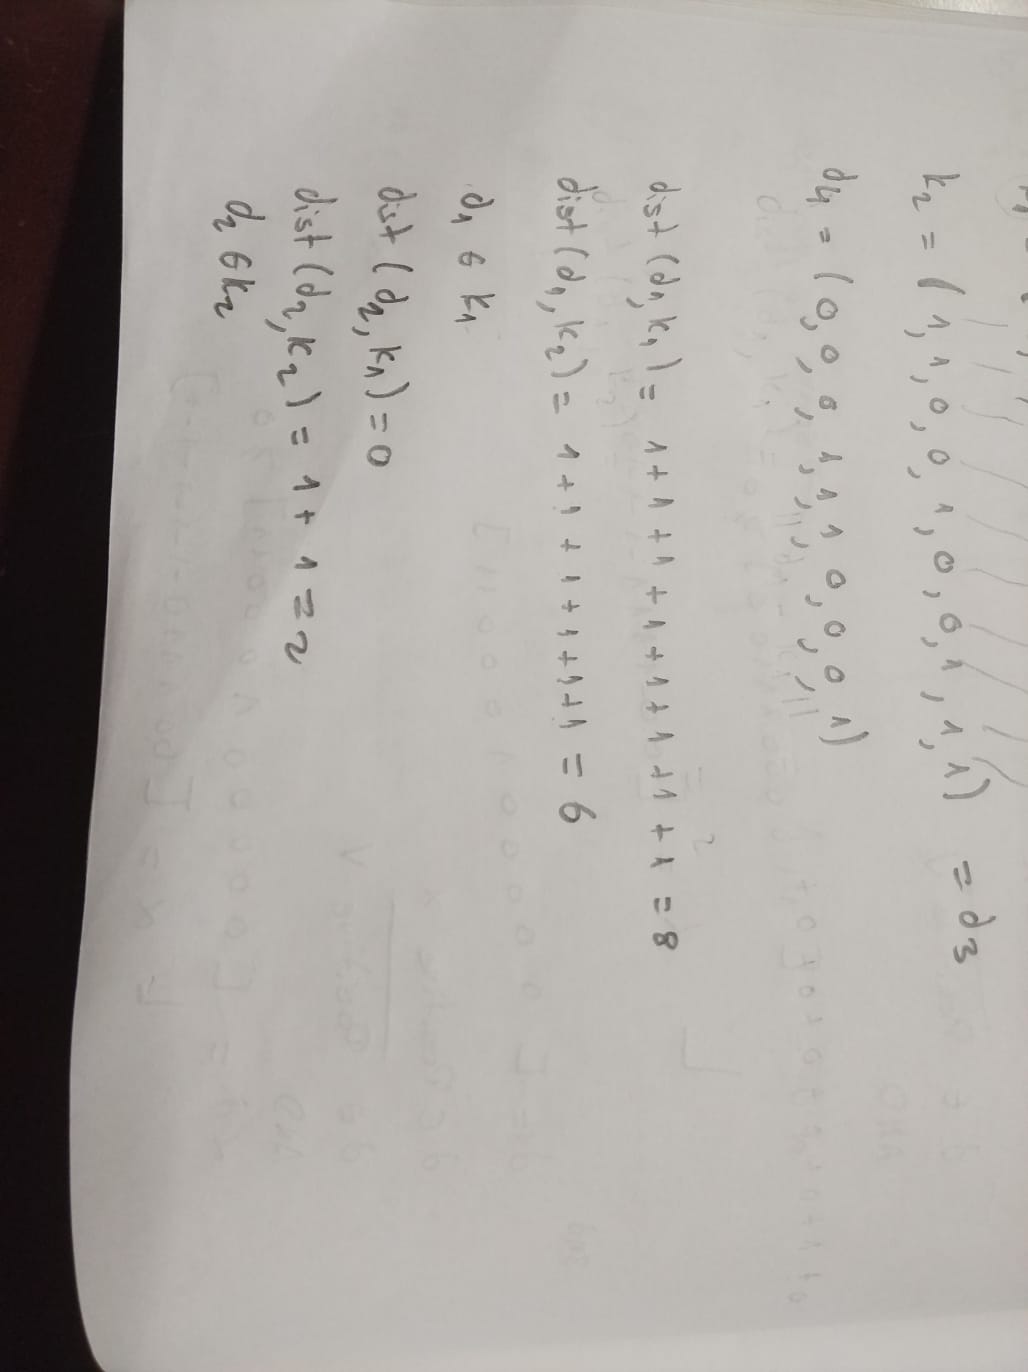 k2 = (1,1,0,0,1,0,0,1,1,1) = d3
d4 = (0,0,0,1,1,1,0,0,0,1)
dist(d1,k1) = 1+1+1+1+1+1+1+1=8
dist(d1,k2)= 1+1+1+1+1+1=6
d1 ϵ k1
dist(d2,k1)=0
dist(d2,k2)=1+1=2
d2 ϵ k2